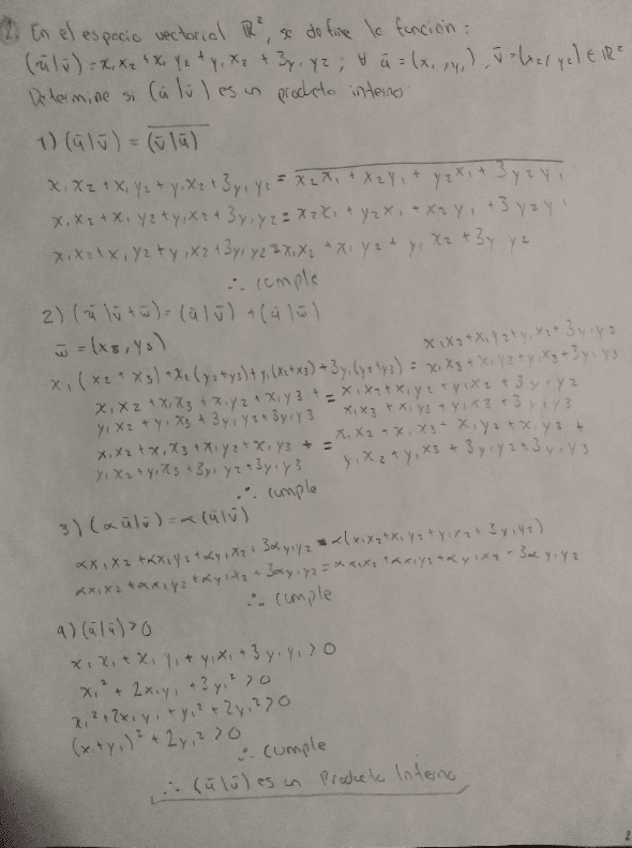 2. En el espacio vectorial ℝ², se define la función:
(ū|v̄) = x₁x₂ + x₁y₂ + y₁x₂ + 3y₁y₂ ; ∀ ū = (x₁, y₁), v̄ = (x₂, y₂) ∈ ℝ²
Determine si (ū|v̄) es un producto interno
1) (ū|v̄) = \overline{(v̄|ū)}
x₁x₂ + x₁y₂ + y₁x₂ + 3y₁y₂ = \overline{x₂x₁ + x₂y₁ + y₂x₁ + 3y₂y₁}
x₁x₂ + x₁y₂ + y₁x₂ + 3y₁y₂ = x₂x₁ + y₂x₁ + x₂y₁ + 3y₂y₁
x₁x₂ + x₁y₂ + y₁x₂ + 3y₁y₂ = x₁x₂ + x₁y₂ + y₁x₂ + 3y₁y₂
∴ cumple
2) (ū|v̄+w̄) = (ū|v̄) + (ū|w̄)
w̄ = (x₃, y₃)
x₁x₂ + x₁y₂ + y₁x₂ + 3y₁y₂
x₁(x₂ + x₃) + x₁(y₂ + y₃) + y₁(x₂ + x₃) + 3y₁(y₂ + y₃) = x₁x₃ + x₁y₃ + y₁x₃ + 3y₁y₃
x₁x₂ + x₁x₃ + x₁y₂ + x₁y₃ + = x₁x₂ + x₁y₂ + y₁x₂ + 3y₁y₂
y₁x₂ + y₁x₃ + 3y₁y₂ + 3y₁y₃ x₁x₃ + x₁y₃ + y₁x₃ + 3y₁y₃
x₁x₂ + x₁x₃ + x₁y₂ + x₁y₃ + = x₁x₂ + x₁x₃ + x₁y₂ + x₁y₃ +
y₁x₂ + y₁x₃ + 3y₁y₂ + 3y₁y₃ y₁x₂ + y₁x₃ + 3y₁y₂ + 3y₁y₃
∴ cumple
3) (αū|v̄) = α(ū|v̄)
αx₁x₂ + αx₁y₂ + αy₁x₂ + 3αy₁y₂ = α(x₁x₂ + x₁y₂ + y₁x₂ + 3y₁y₂)
αx₁x₂ + αx₁y₂ + αy₁x₂ + 3αy₁y₂ = αx₁x₂ + αx₁y₂ + αy₁x₂ + 3αy₁y₂
∴ cumple
4) (ū|ū) > 0
x₁x₁ + x₁y₁ + y₁x₁ + 3y₁y₁ > 0
x₁² + 2x₁y₁ + 3y₁² > 0
x₁² + 2x₁y₁ + y₁² + 2y₁² > 0
(x₁ + y₁)² + 2y₁² > 0
∴ cumple
∴ (ū|v̄) es un Producto Interno
2